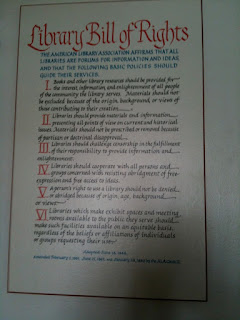 Library Bill of Rights
THE AMERICAN LIBRARY ASSOCIATION AFFIRMS THAT ALL
LIBRARIES ARE FORUMS FOR INFORMATION AND IDEAS,
AND THAT THE FOLLOWING BASIC POLICIES SHOULD
GUIDE THEIR SERVICES.
I. Books and other library resources should be provided for
the interest, information, and enlightenment of all people
of the community the library serves. Materials should not
be excluded because of the origin, background, or views of
those contributing to their creation.
II. Libraries should provide materials and information
presenting all points of view on current and historical
issues. Materials should not be proscribed or removed because
of partisan or doctrinal disapproval.
III. Libraries should challenge censorship in the fulfillment
of their responsibility to provide information and
enlightenment.
IV. Libraries should cooperate with all persons and
groups concerned with resisting abridgment of free
expression and free access to ideas.
V. A person's right to use a library should not be denied
or abridged because of origin, age, background,
or views.
VI. Libraries which make exhibit spaces and meeting
rooms available to the public they serve should
make such facilities available on an equitable basis,
regardless of the beliefs or affiliations of individuals
or groups requesting their use.
Adopted June 18, 1948.
Amended February 2, 1961, June 27, 1967, and January 23, 1980